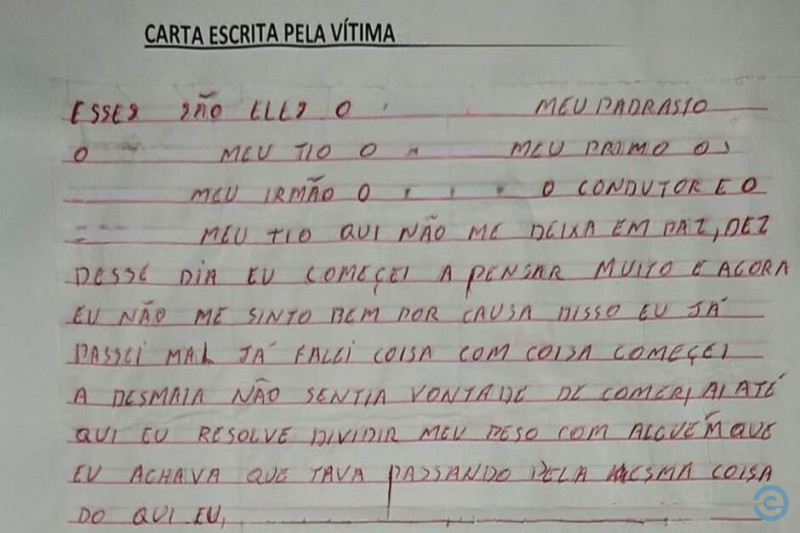 CARTA ESCRITA PELA VÍTIMA
ESSES SÃO ELES O MEU PADRASTO
O MEU TIO O MEU PRIMO OS
MEU IRMÃO O O CONDUTOR E O
MEU TIO QUI NÃO ME DEIXA EM PAZ, DEZ
DESSE DIA EU COMEÇEI A PENSAR MUITO E AGORA
EU NÃO ME SINTO BEM POR CAUSA DISSO EU JÁ
PASSEI MAL JÁ FALEI COISA COM COISA COMEÇEI
A DESMAIA NÃO SENTIA VONTADE DE COMER, AI ATÉ
QUI EU RESOLVE DIVIDIR MEU PESO COM ALGUÉM QUE
EU ACHAVA QUE TAVA PASSANDO PELA MESMA COISA
DO QUI EU,